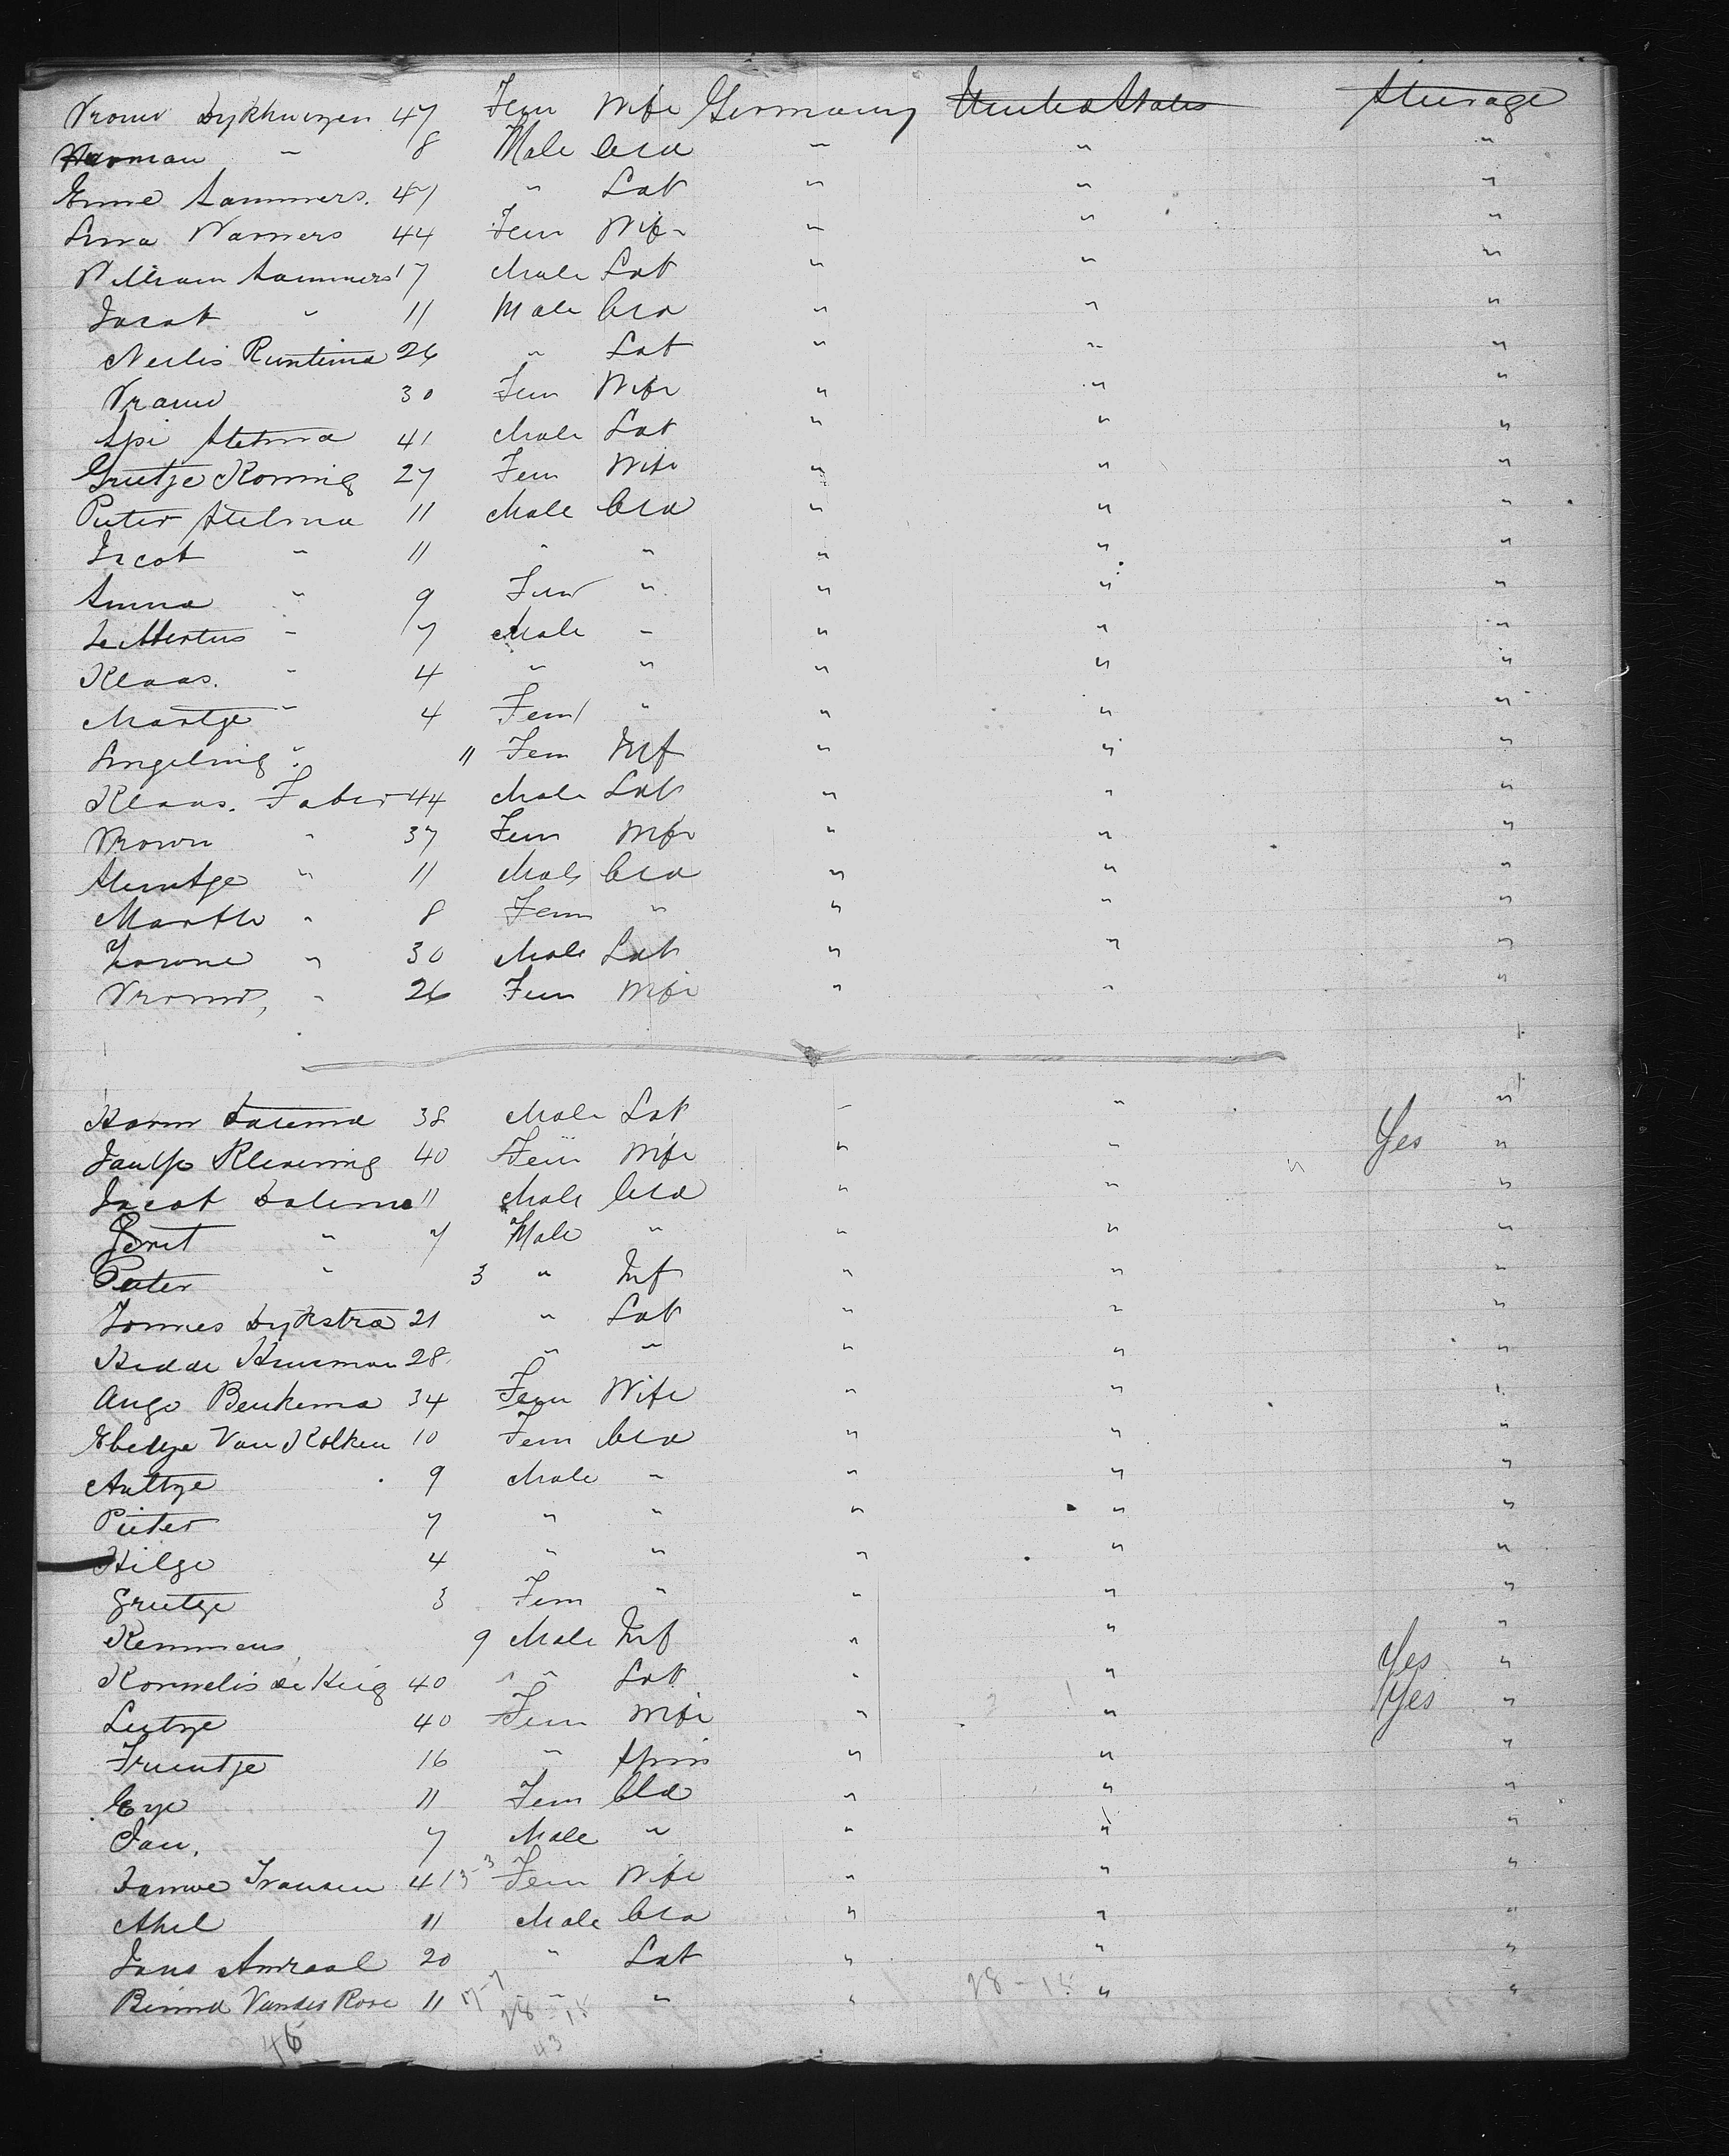 Vrouw Dykhuizen 47 Fem Wife Germany United States Steerage
Harman " 8 Male Chd " " "
Enne Sammers. 47 " Lab " " "
Anna Warners 44 Fem Wife " " "
William Sammers 17 Male Lab " " "
Jacob " 11 Male Chd " " "
Neelis Runtema 26 " Lab " " "
Vrouw 30 Fem Wife " " "
Api Stelma 41 Male Lab " " "
Grietje Koning 27 Fem Wife " " "
Pieter Stelma 11 Male Chd " " "
Jacob " 11 " " " " "
Anna " 9 Fem " " " "
Lebbertus " 7 Male " " " "
Klaas. " 4 " " " " "
Martje " 4 Fem " " " "
Engeling " 11 Fem Inf " " "
Klaas. Faber 44 Male Lab " " "
Vrouw " 37 Fem Wife " " "
Sientje " 11 Male Chd " " "
Marthe " 8 Fem " " " "
" 30 Male Lab " " "
Vrouw, " 26 Fem Wife " " "
Harm Dalema 38 Male Lab " " "
Klevering 40 Fem Wife " " Yes "
Jacob Dalema 11 Male Chd " " "
Gerrit " 7 Male " " " "
Pieter " 3 " Inf " " "
Jonnes Dykstra 21 " Lab " " "
Hidde Huisman 28 " " " " "
Auge Beukema 34 Fem Wife " " "
Ebeltje Van Kolken 10 Fem Chd " " "
Aaltje 9 Male " " " "
Pieter 7 " " " " "
Hilje 4 " " " " "
Grietje 3 Fem " " " "
Remmeus 9 Male Inf " " "
Kornelis de Heig 40 " Lab " " Yes "
Leutje 40 Fem Wife " " Yes "
Trientje 16 " Spin " " "
Eye 11 Fem Chd " " "
Jan, 7 Male " " " "
Fransen 41 3-3 Fem Wife " " "
Abel 11 Male Chd " " "
Jans Amraal 20 " Lab " " "
Berend Vander Rose 11 17-7 " " " " "
28-15 28-15
46 43